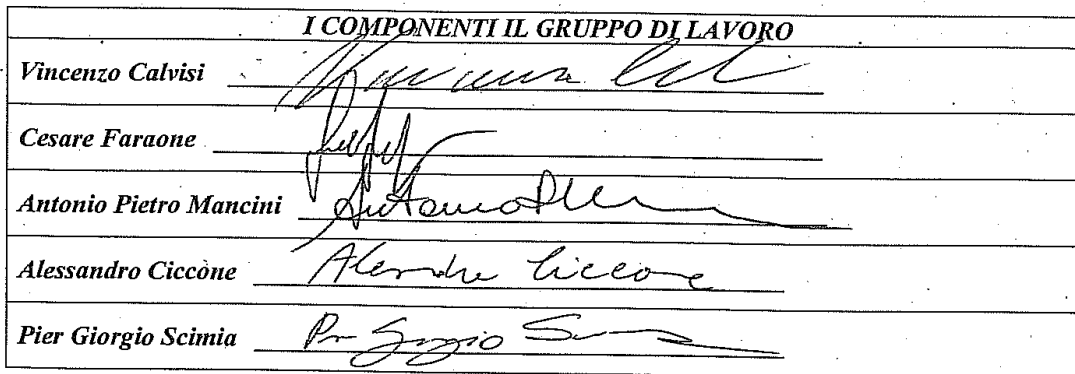 I COMPONENTI IL GRUPPO DI LAVORO
Vincenzo Calvisi
Cesare Faraone
Antonio Pietro Mancini Antonio
Alessandro Ciccone Alessandro Ciccone
Pier Giorgio Scimia Pier Giorgio